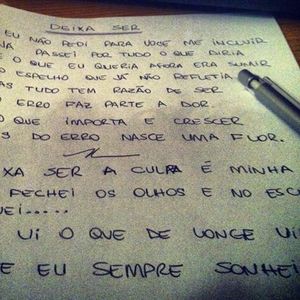 DEIXA SER
EU NÃO PEDI PARA VOCÊ ME INCLUIR
JÁ PASSEI POR TUDO O QUE DIRIA
E O QUE EU QUERIA AGORA ERA SUMIR
O ESPELHO QUE JÁ NÃO REFLETIA
AS TUDO TEM RAZÃO DE SER
O ERRO FAZ PARTE A DOR.
O QUE IMPORTA E CRESCER
S DO ERRO NASCE UMA FLOR.
IXA SER A CULPA É MINHA
FECHEI OS OLHOS E NO ESC
QUEI.....
VI O QUE DE LONGE VI
E EU SEMPRE SONHEI